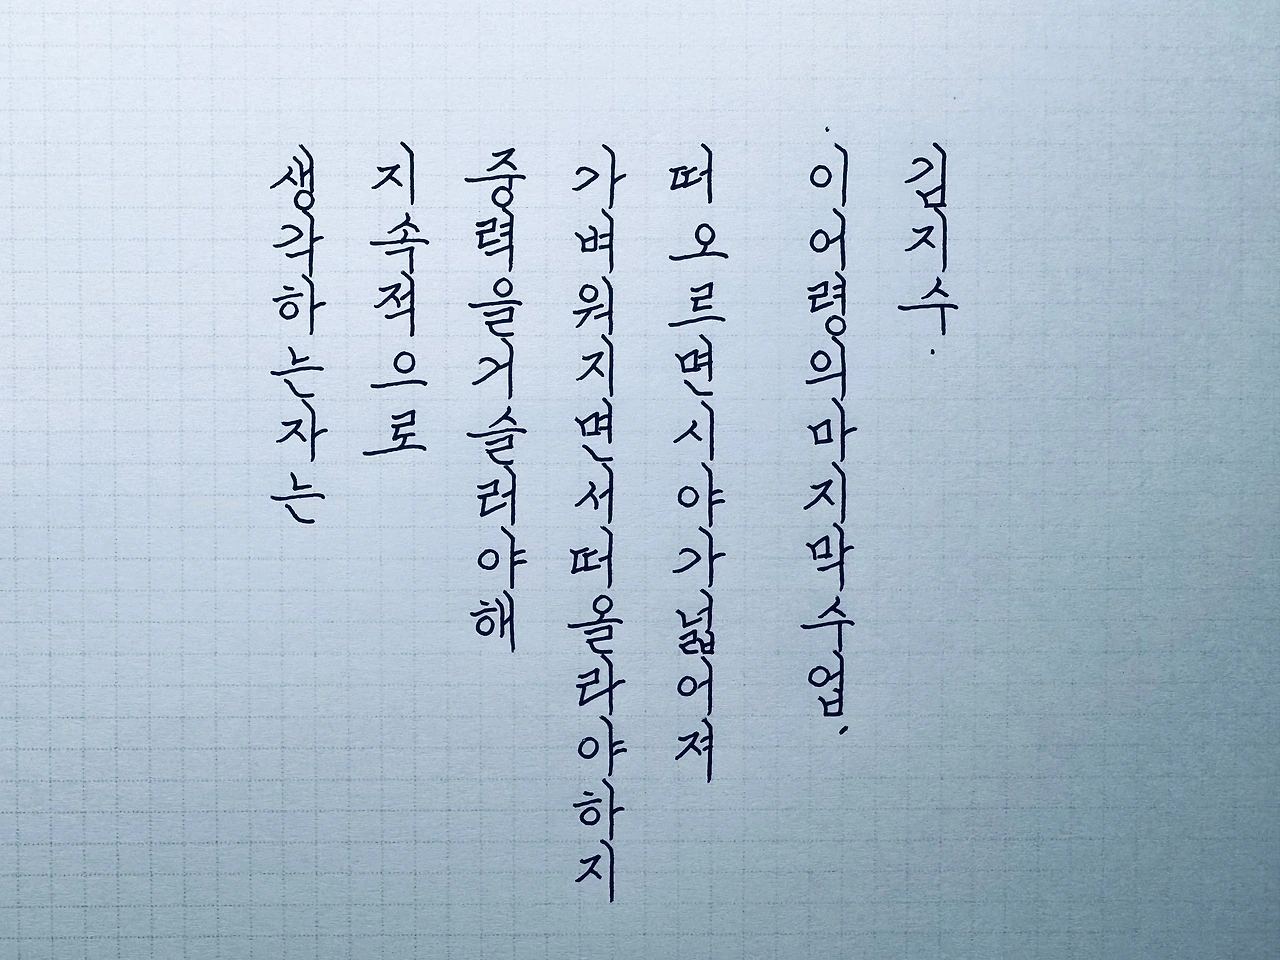 생각하는자는
지속적으로
중력을거슬러야해
가벼워지면서떠올라야하지
떠오르면시야가넓어져
·이어령의마지막수업.
김지수.